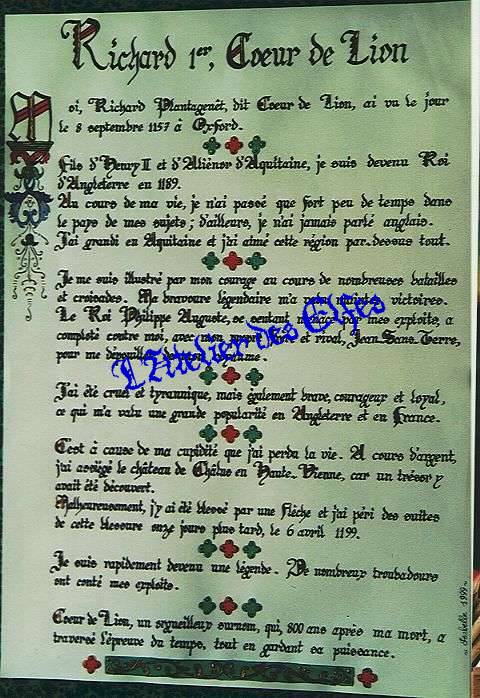 Richard 1er, Coeur de Lion
oi, Richard Plantagenêt, dit Coeur de Lion, ai vu le jour
le 8 septembre 1157 à Oxford.
Fils d'Henry II et d'Aliénor d'Aquitaine, je suis devenu Roi
d'Angleterre en 1189.
Au cours de ma vie, je n'ai passé que fort peu de temps dans
le pays de mes sujets ; d'ailleurs, je n'ai jamais parlé anglais.
J'ai grandi en Aquitaine et j'ai aimé cette région par-dessus tout.
Je me suis illustré par mon courage au cours de nombreuses batailles
et croisades. Ma bravoure légendaire m'a valu maintes victoires.
Le Roi Philippe Auguste, se sentant menacé par mes exploits, a
comploté contre moi, avec mon et rival, Jean Sans Terre,
pour me
L'Atelier des Elfes
J'ai été cruel et tyrannique, mais également brave, courageux et loyal,
ce qui m'a valu une grande popularité en Angleterre et en France.
C'est à cause de ma cupidité que j'ai perdu la vie. A cours d'argent,
j'ai assiégé le château de Châlus en Haute-Vienne, car un trésor y
avait été découvert.
Malheureusement, j'y ai été blessé par une flèche et j'ai péri des suites
de cette blessure onze jours plus tard, le 6 avril 1199.
Je suis rapidement devenu une légende. De nombreux troubadours
ont conté mes exploits.
Coeur de Lion, un orgueilleux surnom, qui, 800 ans après ma mort, a
traversé l'épreuve du temps, tout en gardant sa puissance.
~ Isabelle 1999 ~